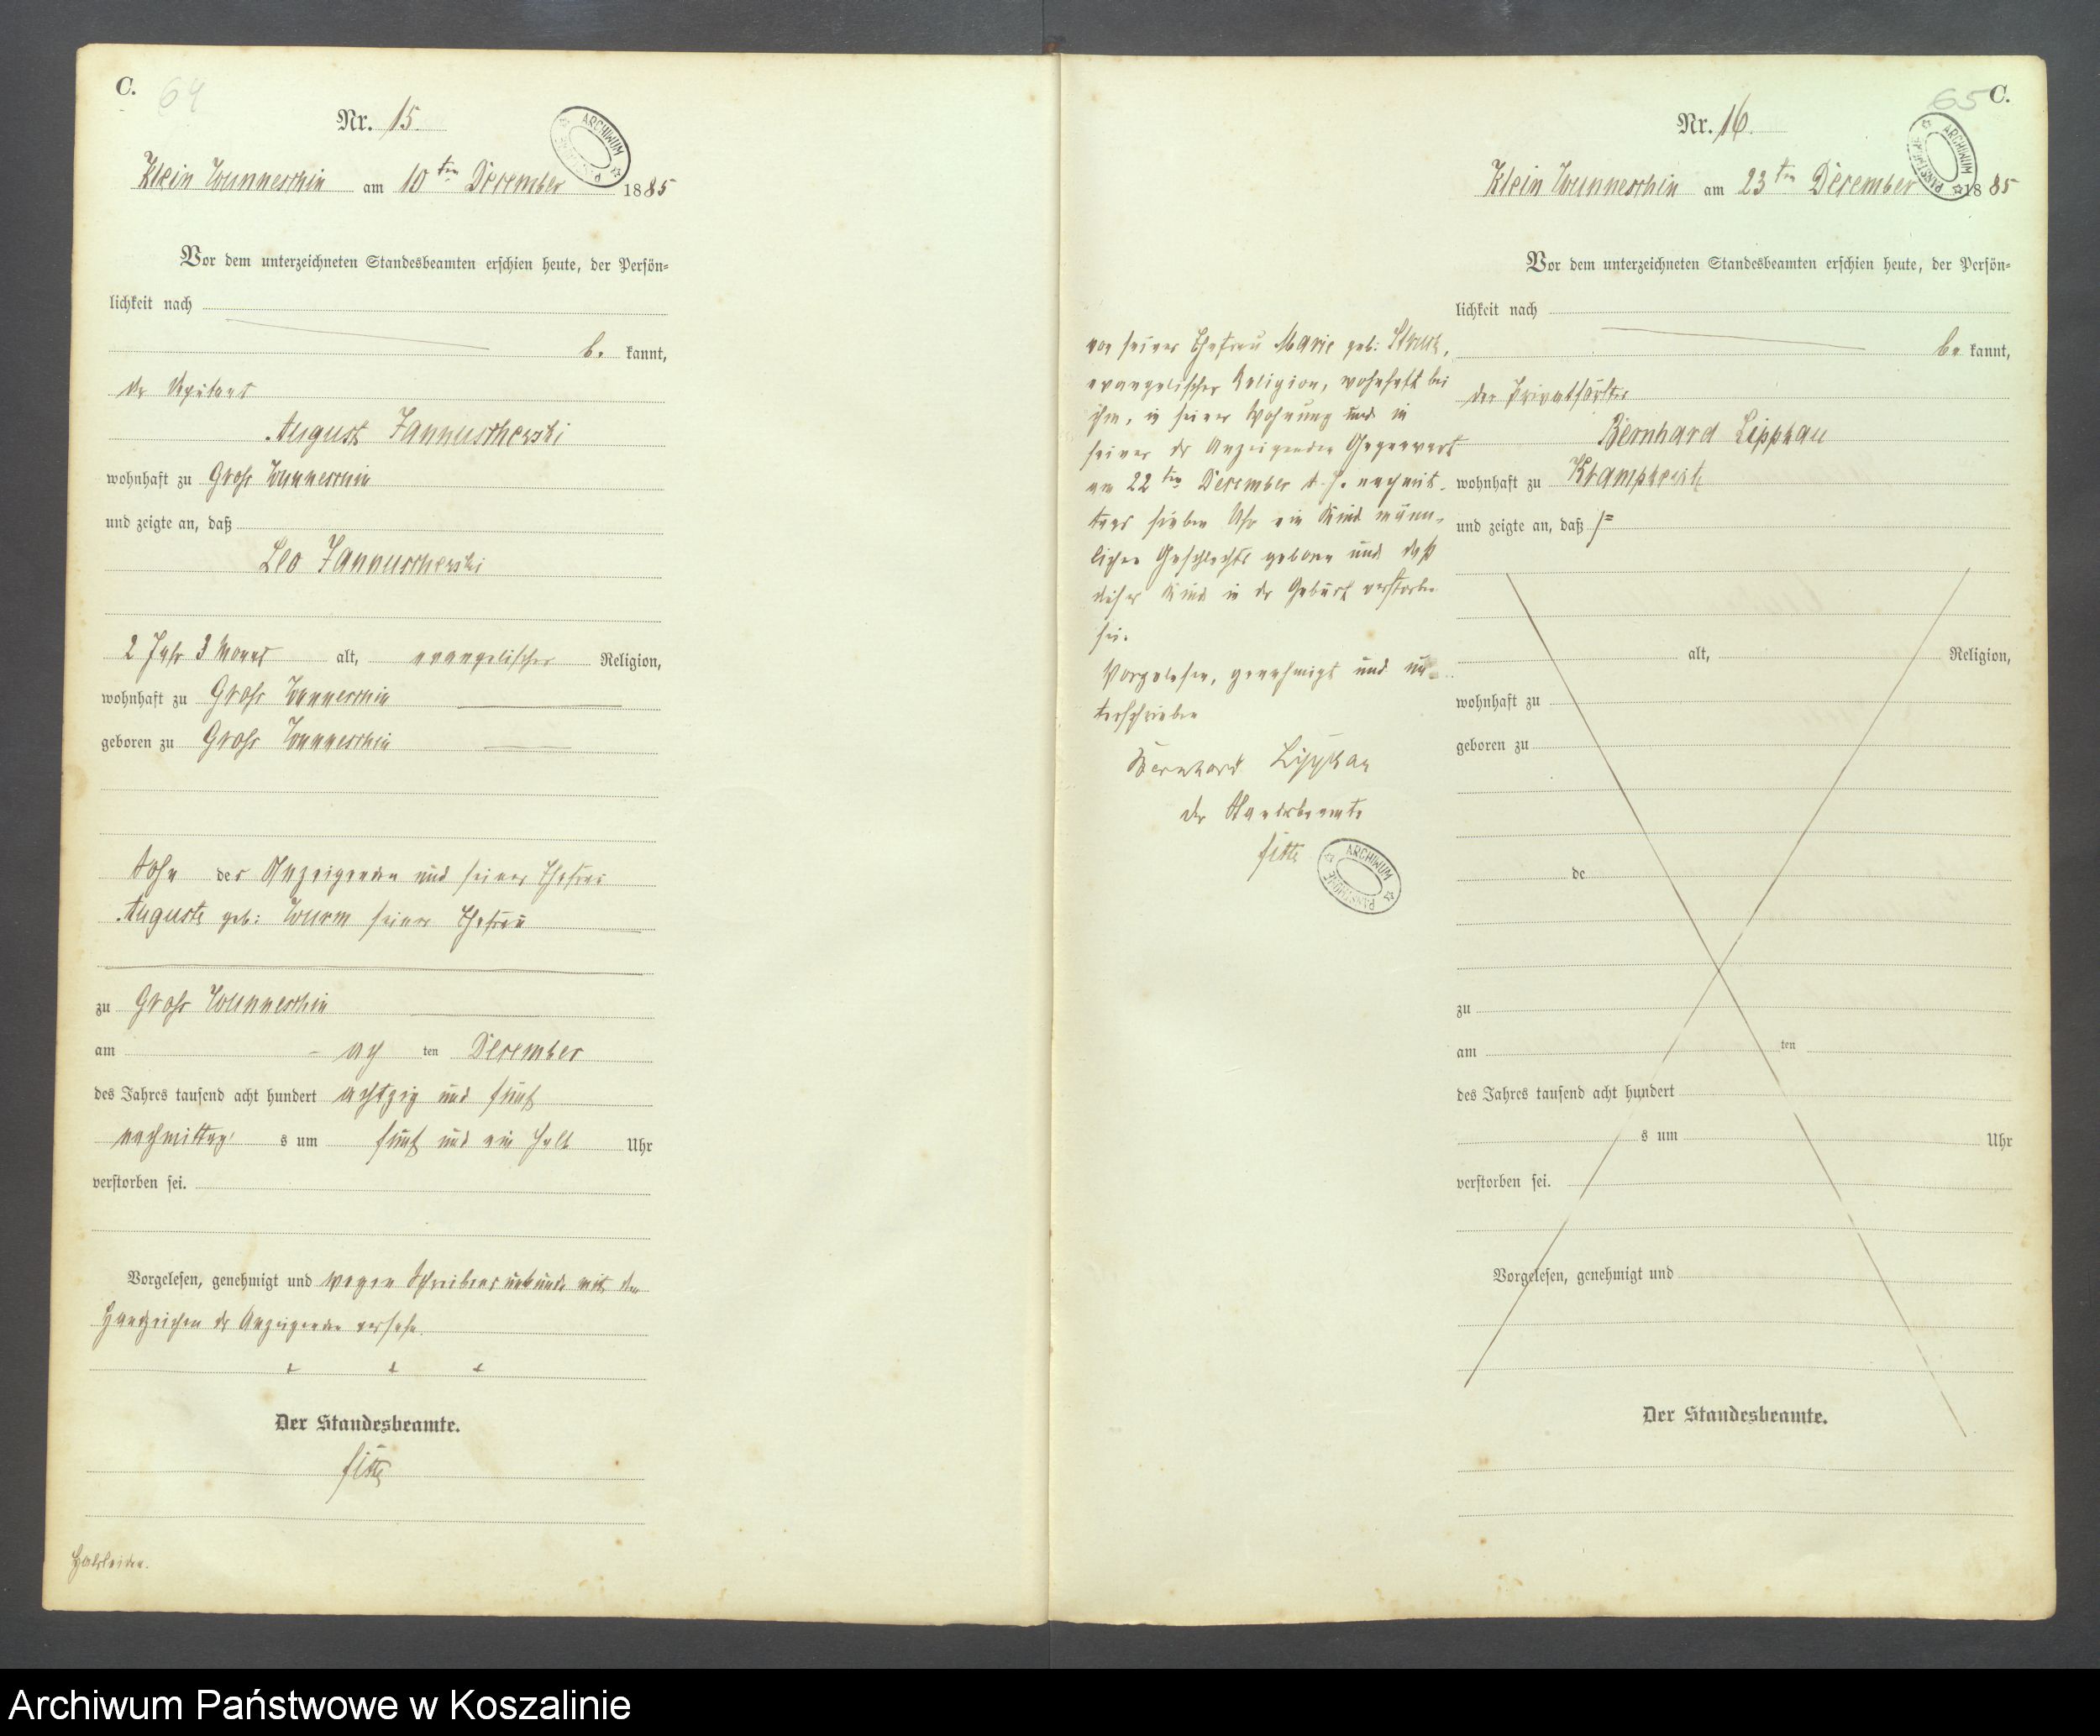 C.
64
Nr. 15.
ARCHIWUM PAŃSTWOWE
Klein Wunneschin am 10ten December 1885
Vor dem unterzeichneten Standesbeamten erschien heute, der Persön=
lichkeit nach
be kannt,
der Deputant
August Jannuschewski
wohnhaft zu Groß Wunneschin
und zeigte an, daß
Leo Jannuschewski
2 Jahr 3 Monat alt, evangelischer Religion,
wohnhaft zu Groß Wunneschin
geboren zu Groß Wunneschin
Sohn des Anzeigenden und seiner Ehefrau
Auguste geb: Wurm seiner Ehefrau
zu Groß Wunneschin
am ten December
des Jahres tausend acht hundert achtzig und fünf
nachmittag s um fünf und ein halb Uhr
verstorben sei.
Vorgelesen, genehmigt und wegen Schreibensunkunde mit dem
Handzeichen des Anzeigenden versehen.
+ + +
Der Standesbeamte.
Halsleiden.
65 C.
Nr. 16.
ARCHIWUM PAŃSTWOWE
Klein Wunneschin am 23ten December 1885
Vor dem unterzeichneten Standesbeamten erschien heute, der Persön=
lichkeit nach
be kannt,
der Privatförster
Bernhard Lippkau
wohnhaft zu
und zeigte an, daß
von seiner Ehefrau Marie geb:
evangelischer Religion, wohnhaft bei
ihm, in seiner Wohnung und in
seiner des Anzeigenden Gegenwart
am 22ten December d. J. nachmit-
tags sieben Uhr ein Kind männ-
lichen Geschlechts geboren und daß
dieses Kind in der Geburt verstorben
sei.
Vorgelesen, genehmigt und un-
terschrieben
Bernhard Lippkau
der Standesbeamte
ARCHIWUM PAŃSTWOWE
alt, Religion,
wohnhaft zu
geboren zu
de
zu
am ten
des Jahres tausend acht hundert
s um Uhr
verstorben sei.
Vorgelesen, genehmigt und
Der Standesbeamte.
Archiwum Państwowe w Koszalinie